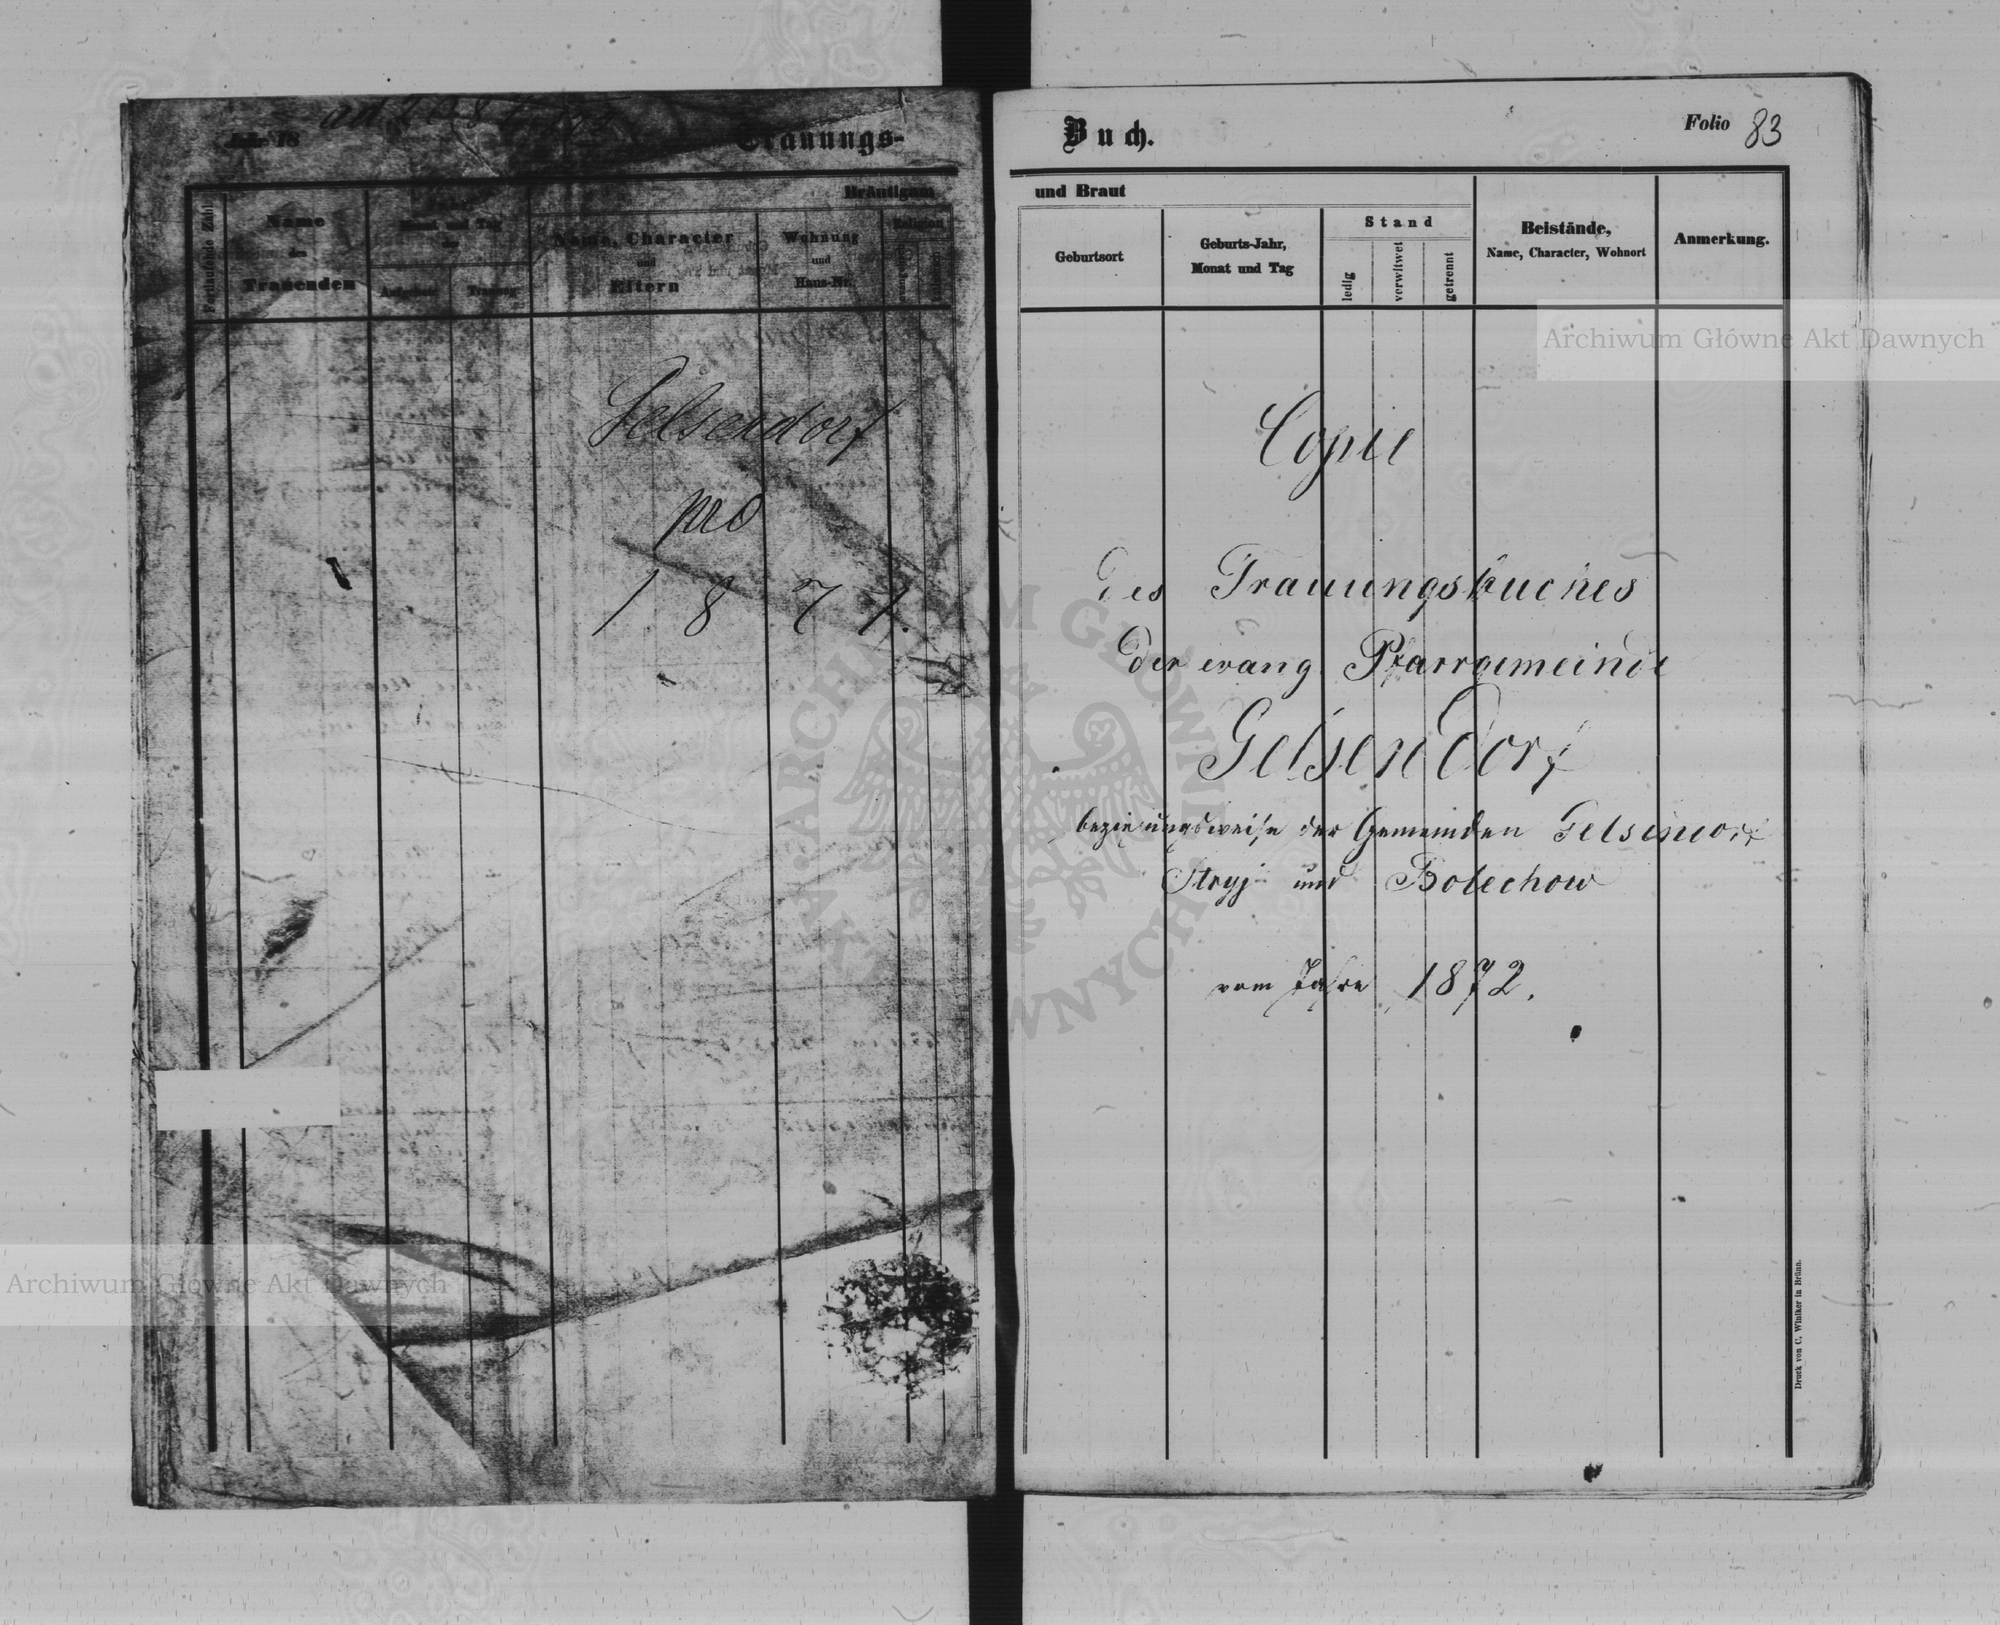 Jahr 18
Trauungs-
Bräutigam
Fortlaufende Zahl
Name
des
Trauenden
Monat und Tag
der
Trauung
Name, Character
und
Eltern
Wohnung
und
Haus-Nr.
Religion
Gelsendorf
pro
1871.
Buch.
Folio 83
und Braut
Geburtsort
Geburts-Jahr,
Monat und Tag
Stand
ledig
verwitwet
getrennt
Beistände,
Name, Character, Wohnort
Anmerkung.
Copie
des Trauungsbuches
der evang. Pfarrgemeinde
Gelsendorf
beziehungsweise der Gemeinden Gelsendorf
Stryj und Bolechow
vom Jahre 1872.
Druck von C. Winiker in Brünn.
Archiwum Główne Akt Dawnych
Archiwum Główne Akt Dawnych